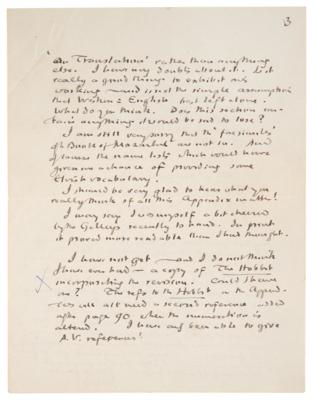 3
on Translation' rather than anything
else. I have my doubts about it. Is it
really a good thing to exhibit one's
working – and is not the simple assumption
that Western = English best left alone.
What do you think. Does this section con-
tain anything it would be sad to lose?
I am still very sorry that the 'facsimiles'
of the Book of Mazarbul are not in. And
I grieve the name lists which would have
given me a chance of providing some
Elvish vocabulary!
I should be very glad to hear what you
really think of all this Appendix matter!
I may say I was myself a bit cheered
by the Galleys recently to hand. In print
it proved more readable than I had thought.
I have not got – and I do not think
I have ever had – a copy of The Hobbit
incorporating the revision. Could I have
one? The refs to the Hobbit in the Append-
ices will all need a second reference added
after page 90 when the numeration is
altered. I have only been able to give
A.V. references!